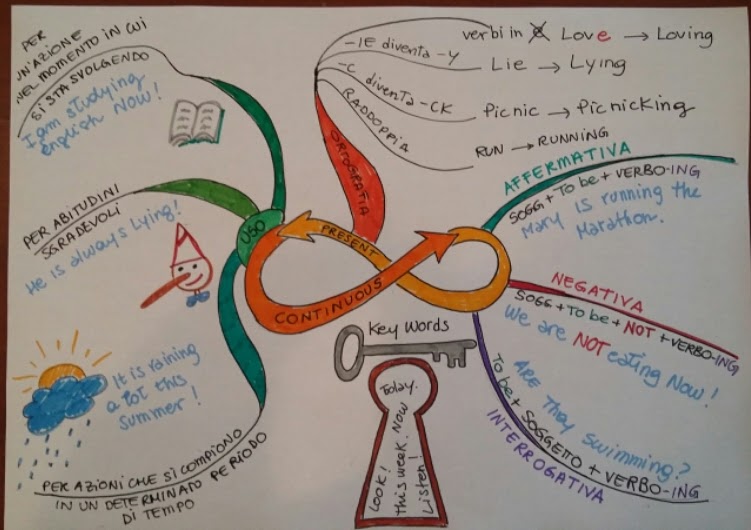 PER
UN'AZIONE
NEL MOMENTO IN CUI
SI STA SVOLGENDO
I am studying
english NOW!
PER ABITUDINI
SGRADEVOLI
He is always Lying!
It is raining
a lot this
summer!
PER AZIONI CHE SI COMPIONO
IN UN DETERMINATO PERIODO
DI TEMPO
USO
PRESENT
CONTINUOUS
ORTOGRAFIA
verbi in e Love → Loving
-IE diventa -Y
Lie → Lying
-C diventa -CK
Picnic → Picnicking
RADDOPPIA
RUN → RUNNING
AFFERMATIVA
SOGG + To be + VERBO-ING
Mary is running the
Marathon.
NEGATIVA
SOGG + To be + NOT + VERBO-ING
We are NOT eating Now!
ARE They swimming?
To be + SOGGETTO + VERBO-ING
INTERROGATIVA
Key Words
Today.
Look!
This week. Now
Listen!